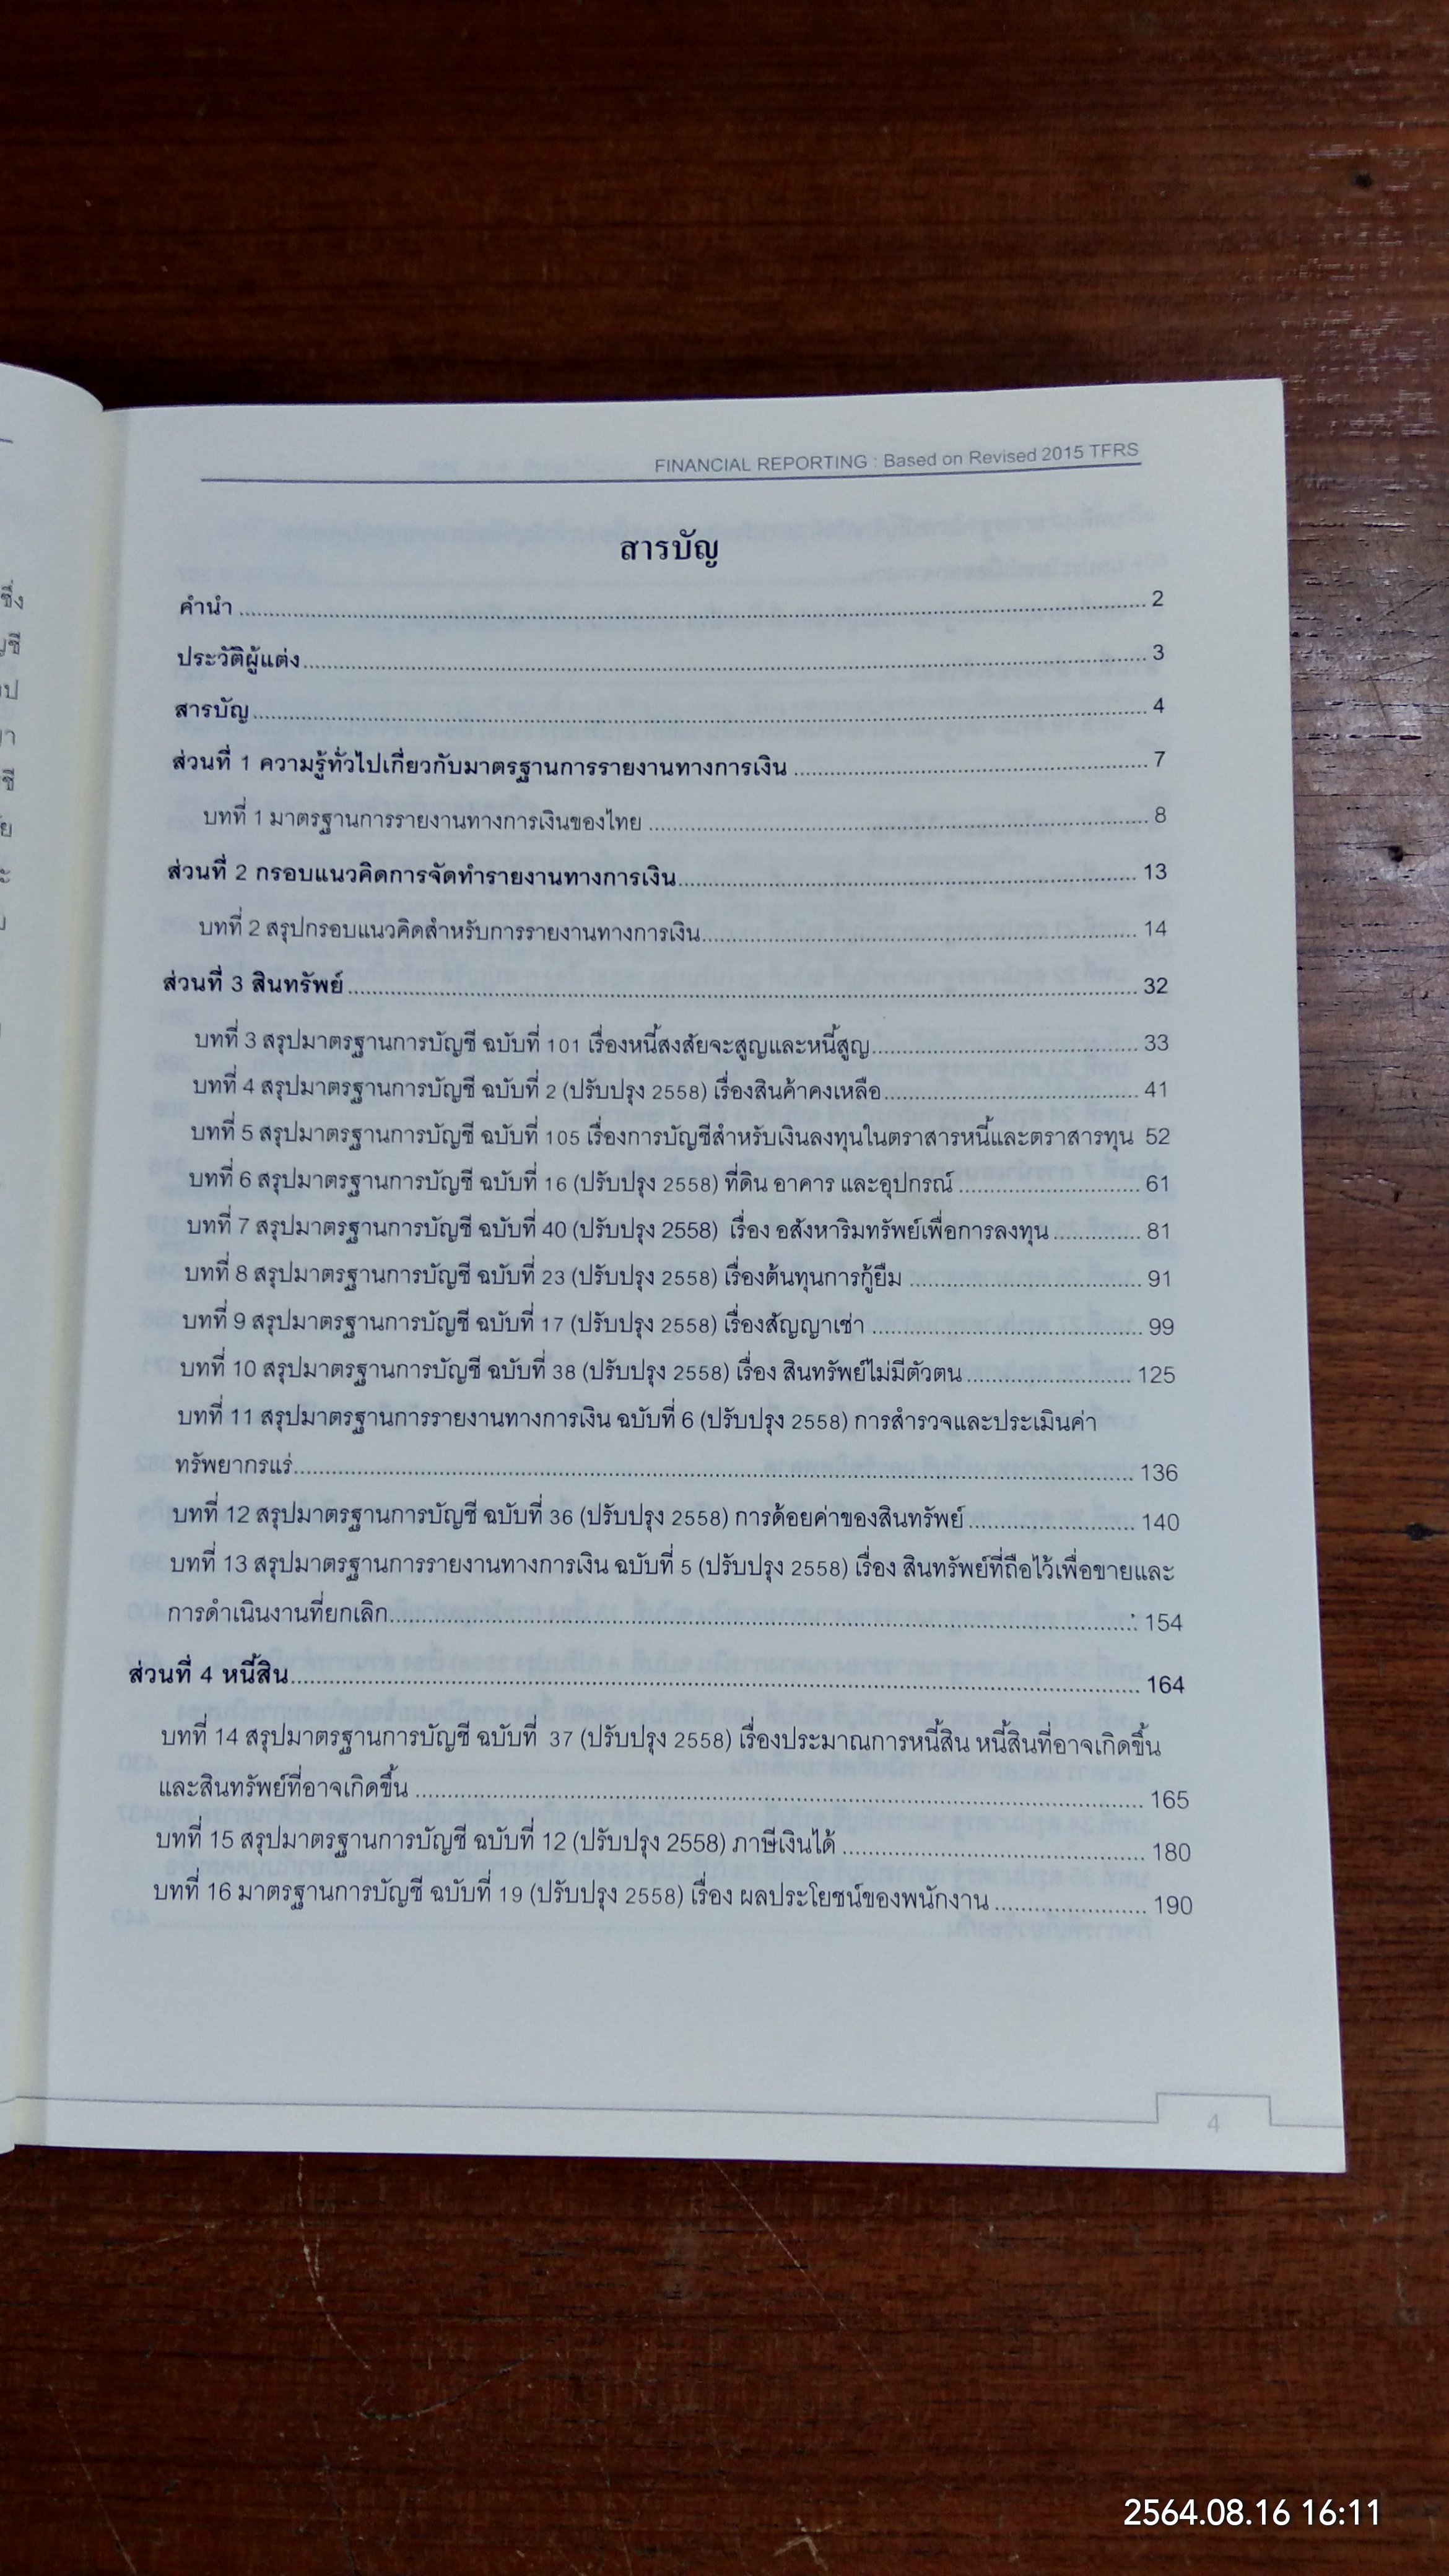 FINANCIAL REPORTING : Based on Revised 2015 TFRS
สารบัญ
คำนำ ........ 2
ประวัติผู้แต่ง ........ 3
สารบัญ ........ 4
ส่วนที่ 1 ความรู้ทั่วไปเกี่ยวกับมาตรฐานการรายงานทางการเงิน ........ 7
บทที่ 1 มาตรฐานการรายงานทางการเงินของไทย ........ 8
ส่วนที่ 2 กรอบแนวคิดการจัดทำรายงานทางการเงิน ........ 13
บทที่ 2 สรุปกรอบแนวคิดสำหรับการรายงานทางการเงิน ........ 14
ส่วนที่ 3 สินทรัพย์ ........ 32
บทที่ 3 สรุปมาตรฐานการบัญชี ฉบับที่ 101 เรื่องหนี้สงสัยจะสูญและหนี้สูญ ........ 33
บทที่ 4 สรุปมาตรฐานการบัญชี ฉบับที่ 2 (ปรับปรุง 2558) เรื่องสินค้าคงเหลือ ........ 41
บทที่ 5 สรุปมาตรฐานการบัญชี ฉบับที่ 105 เรื่องการบัญชีสำหรับเงินลงทุนในตราสารหนี้และตราสารทุน 52
บทที่ 6 สรุปมาตรฐานการบัญชี ฉบับที่ 16 (ปรับปรุง 2558) ที่ดิน อาคาร และอุปกรณ์ ........ 61
บทที่ 7 สรุปมาตรฐานการบัญชี ฉบับที่ 40 (ปรับปรุง 2558) เรื่อง อสังหาริมทรัพย์เพื่อการลงทุน ........ 81
บทที่ 8 สรุปมาตรฐานการบัญชี ฉบับที่ 23 (ปรับปรุง 2558) เรื่องต้นทุนการกู้ยืม ........ 91
บทที่ 9 สรุปมาตรฐานการบัญชี ฉบับที่ 17 (ปรับปรุง 2558) เรื่องสัญญาเช่า ........ 99
บทที่ 10 สรุปมาตรฐานการบัญชี ฉบับที่ 38 (ปรับปรุง 2558) เรื่อง สินทรัพย์ไม่มีตัวตน ........ 125
บทที่ 11 สรุปมาตรฐานการรายงานทางการเงิน ฉบับที่ 6 (ปรับปรุง 2558) การสำรวจและประเมินค่า
ทรัพยากรแร่ ........ 136
บทที่ 12 สรุปมาตรฐานการบัญชี ฉบับที่ 36 (ปรับปรุง 2558) การด้อยค่าของสินทรัพย์ ........ 140
บทที่ 13 สรุปมาตรฐานการรายงานทางการเงิน ฉบับที่ 5 (ปรับปรุง 2558) เรื่อง สินทรัพย์ที่ถือไว้เพื่อขายและ
การดำเนินงานที่ยกเลิก ........ 154
ส่วนที่ 4 หนี้สิน ........ 164
บทที่ 14 สรุปมาตรฐานการบัญชี ฉบับที่ 37 (ปรับปรุง 2558) เรื่องประมาณการหนี้สิน หนี้สินที่อาจเกิดขึ้น
และสินทรัพย์ที่อาจเกิดขึ้น ........ 165
บทที่ 15 สรุปมาตรฐานการบัญชี ฉบับที่ 12 (ปรับปรุง 2558) ภาษีเงินได้ ........ 180
บทที่ 16 มาตรฐานการบัญชี ฉบับที่ 19 (ปรับปรุง 2558) เรื่อง ผลประโยชน์ของพนักงาน ........ 190
4
2564.08.16 16:11